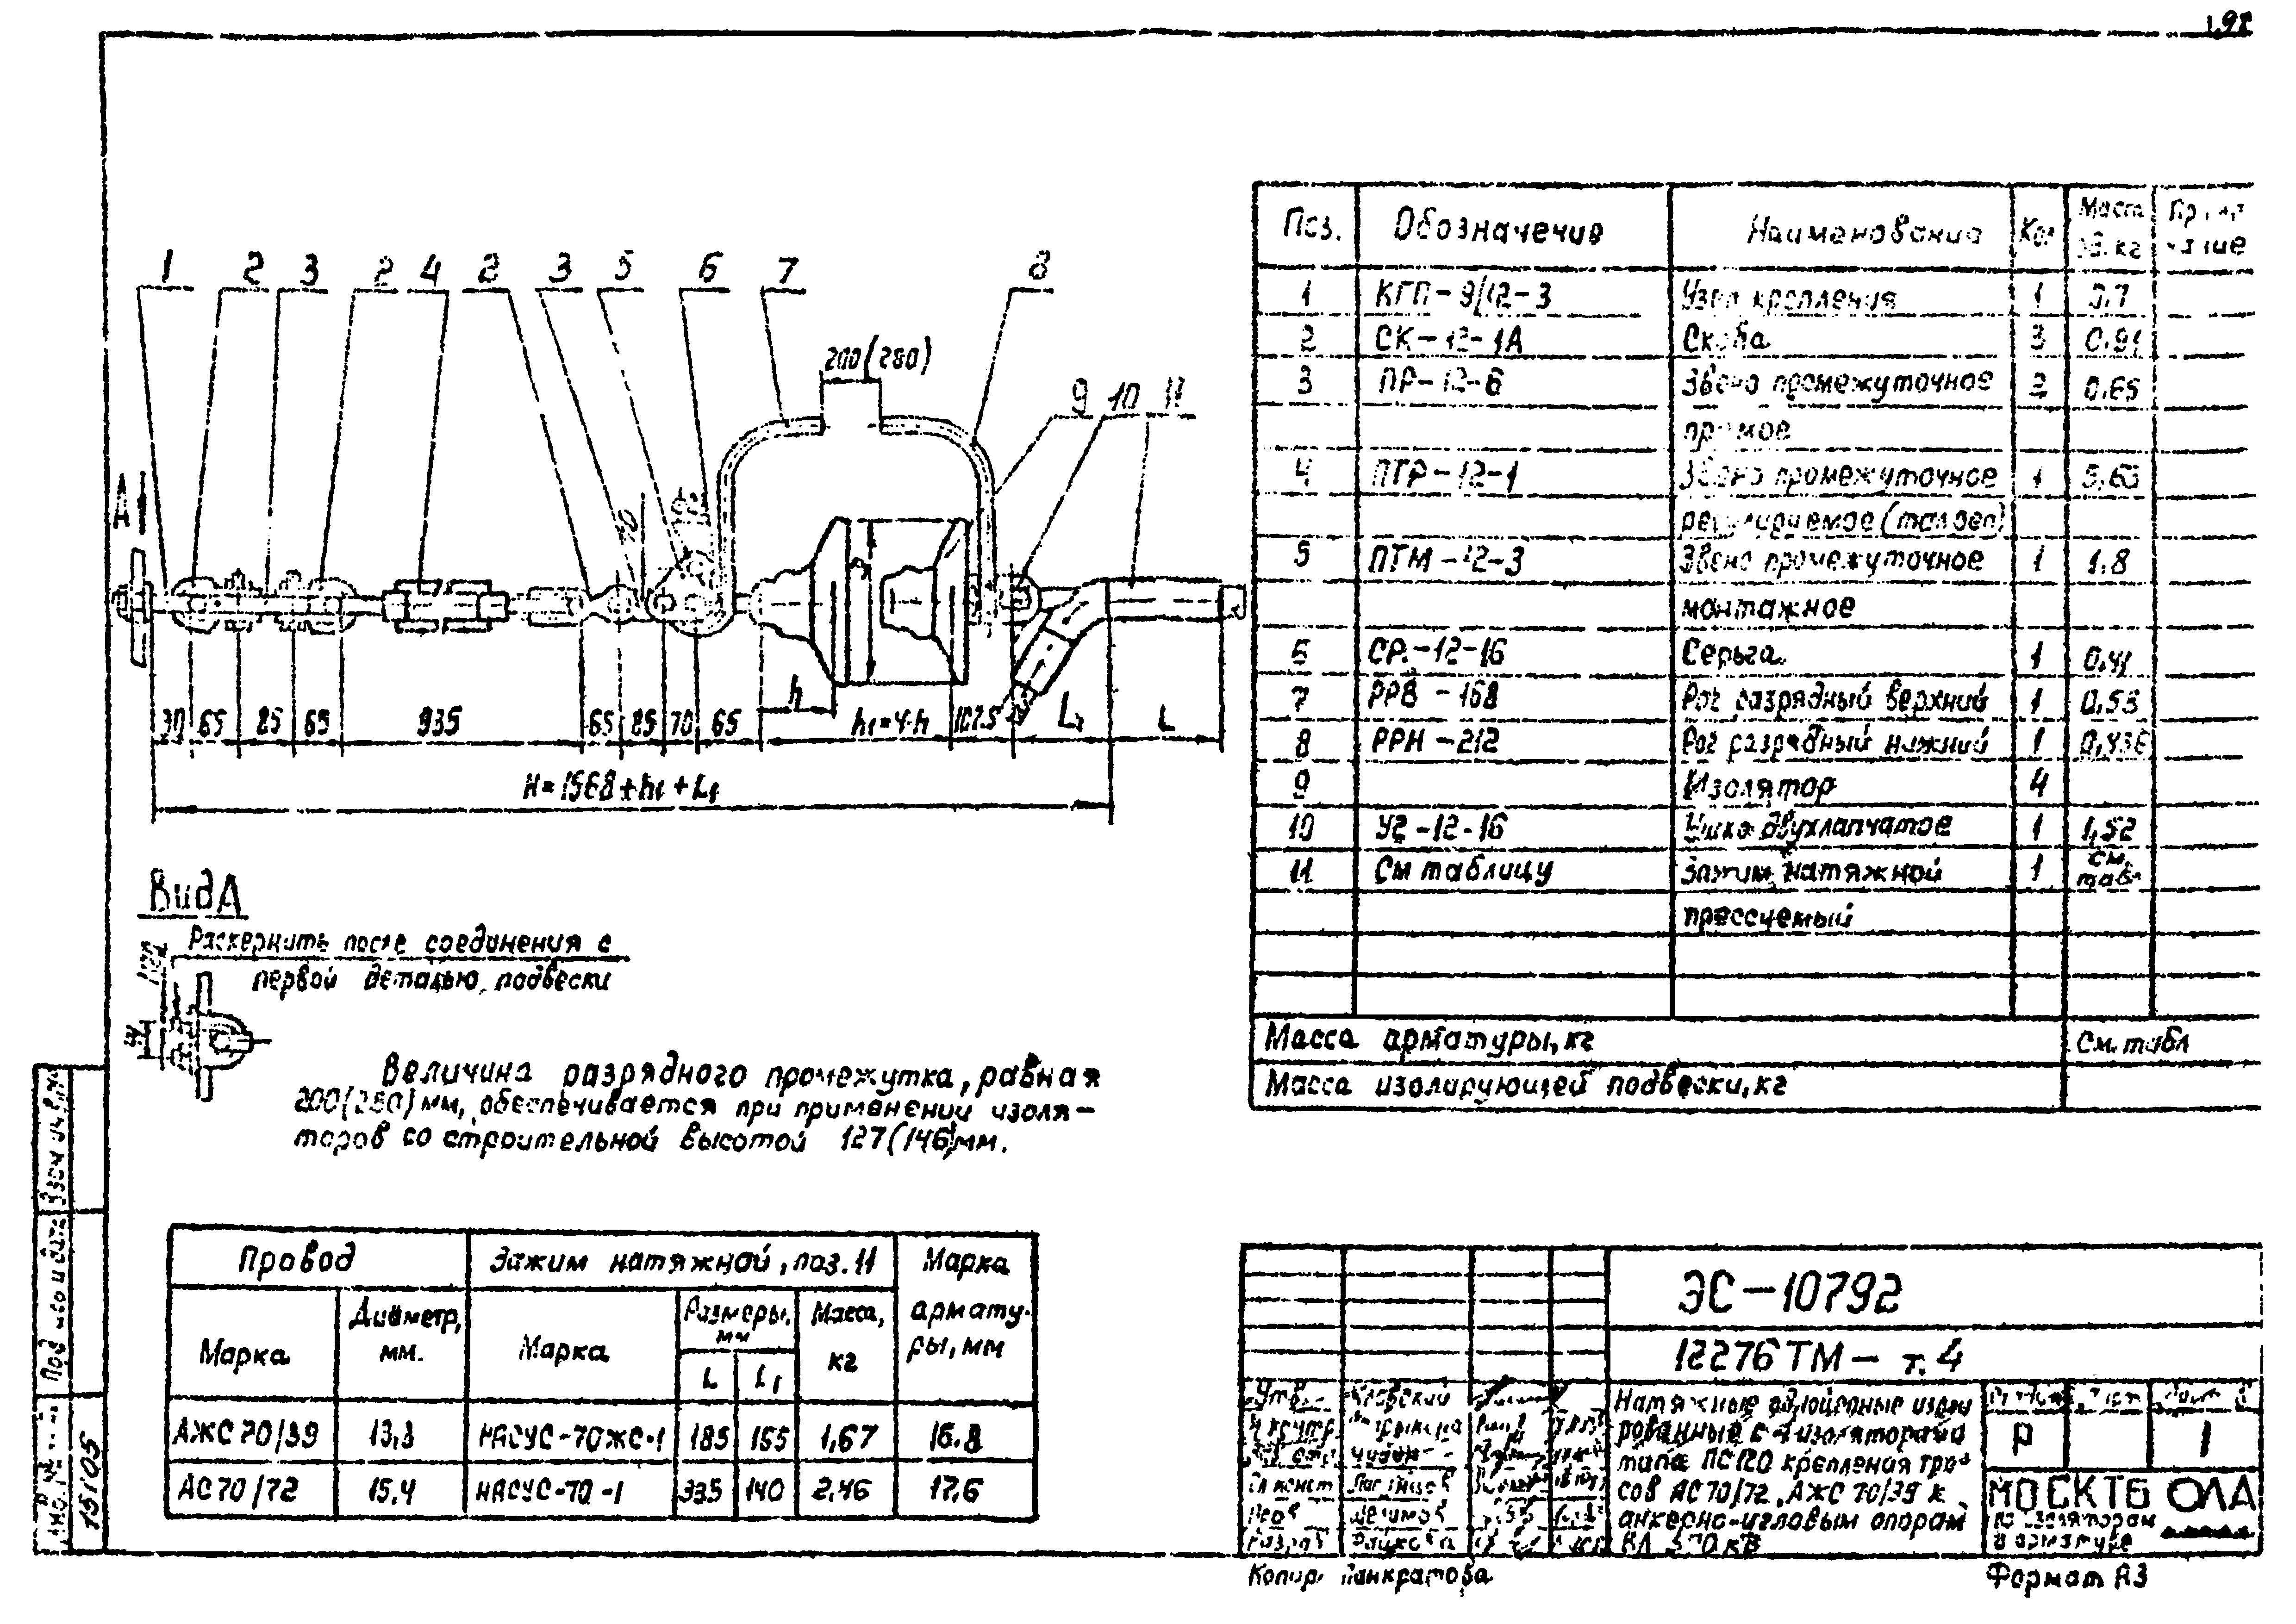 1 2 3 2 4 2 3 5 6 7 8
9 10 11
200(280)
A
70
30 65 85 65 935 65 85 70 65 h h₁=4·h 107.5 L₁ L
H=1568+h₁+L₁
Вид А
Раскернить после соединения с
первой деталью подвески
Величина разрядного промежутка, равная
200(280) мм, обеспечивается при применении изоля-
торов со строительной высотой 127(146) мм.
Поз. Обозначение Наименование Кол Масса ед. кг Приме чание
1 КГП-9/12-3 Узел крепления 1 0.7
2 СК-12-1А Скоба 3 0.91
3 ПР-12-6 Звено промежуточное 2 0.65
прямое
4 ПТР-12-1 Звено промежуточное 1 5.63
регулируемое (талреп)
5 ПТМ-12-3 Звено промежуточное 1 1.8
монтажное
6 СР-12-16 Серьга 1 0.41
7 РРВ-168 Рог разрядный верхний 1 0.53
8 РРН-212 Рог разрядный нижний 1
9 Изолятор 4
10 У2-12-16 Ушко двухлапчатое 1 1,52
11 См таблицу Зажим натяжной 1 см. табл
прессуемый
Масса арматуры, кг См. табл
Масса изолирующей подвески, кг
Провод Зажим натяжной, поз. 11 Марка армату- ры, мм
Марка Диаметр, мм. Марка Размеры, мм Масса, кг
L L₁
АЖС 70/39 13,3 НАСУС-70ЖС-1 185 155 1,67 16.8
АС 70/72 15,4 НАСУС-70-1 335 140 2,46 17,6
ЭС-10792
12276ТМ- т. 4
Натяжные одноцепные изоли
рованные с 4 изоляторами
типа ПС120 крепления тро-
сов АС 70/72, АЖС 70/39 к
анкерно-угловым опорам
ВЛ кВ
Р 1
МОСКТБ ОЛА
по изоляторам
и арматуре
Утв.
Н контр.
Гл конст
Разраб
Копир. Панкратова
Формат А3
Взам инв. №
Подп и дата
Инв. №
15105